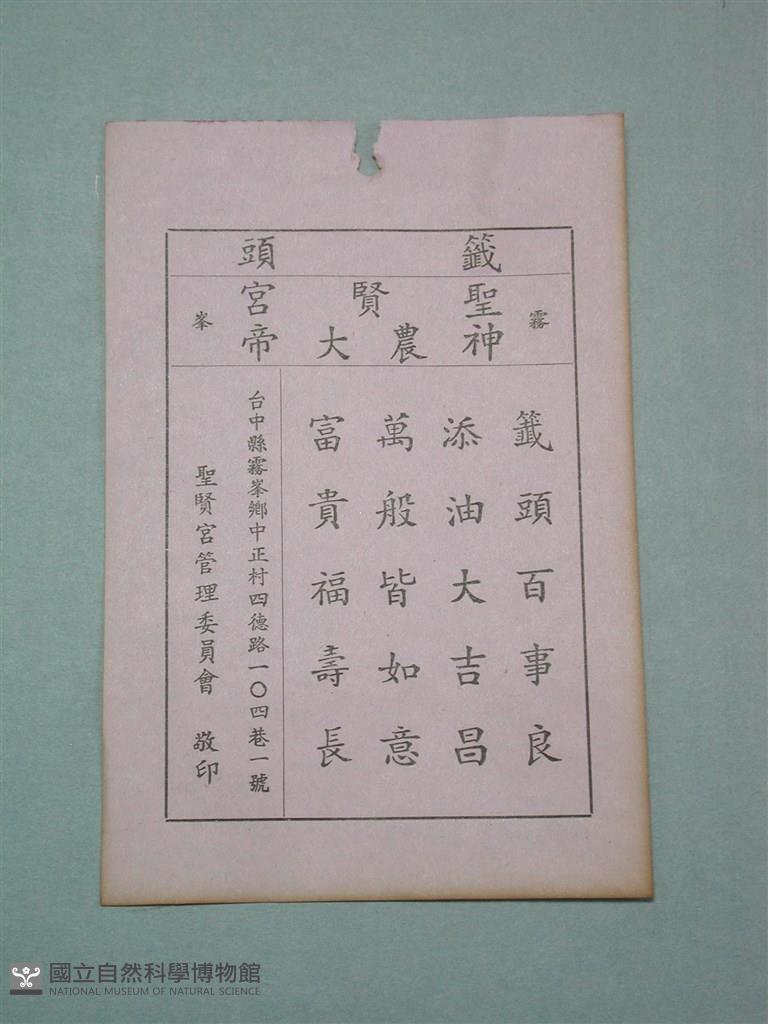 籤頭
霧
聖賢宮
神農大帝
峯
籤頭百事良
添油大吉昌
萬般皆如意
富貴福壽長
台中縣霧峯鄉中正村四德路一〇四巷一號
聖賢宮管理委員會 敬印
國立自然科學博物館
NATIONAL MUSEUM OF NATURAL SCIENCE